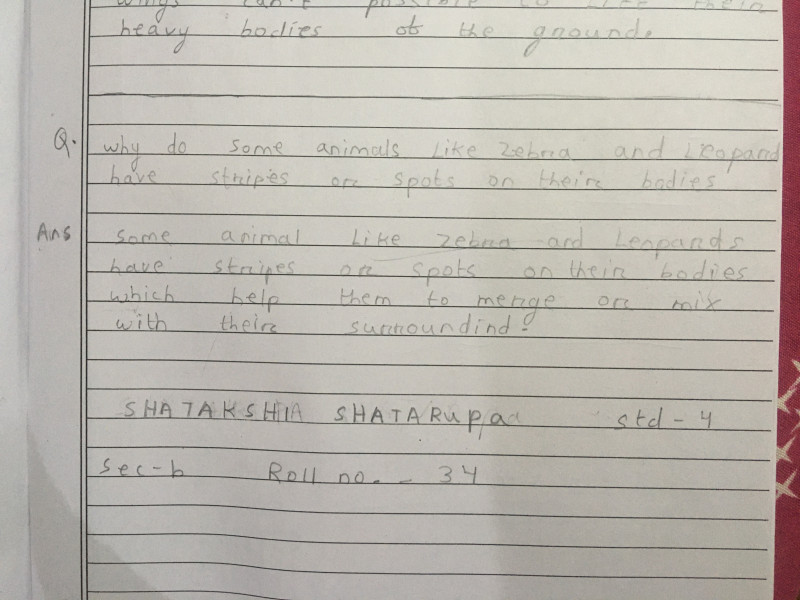 wings can't possible to lift their
heavy bodies of the ground.
Q. why do some animals like zebra and Leopard
have stripes or spots on their bodies
Ans some animal like zebra and Leopards
have stripes or spots on their bodies
which help them to merge or mix
with their surroundind.
SHATAKSHIA SHATARUpaa std - 4
sec-b Roll no. - 34